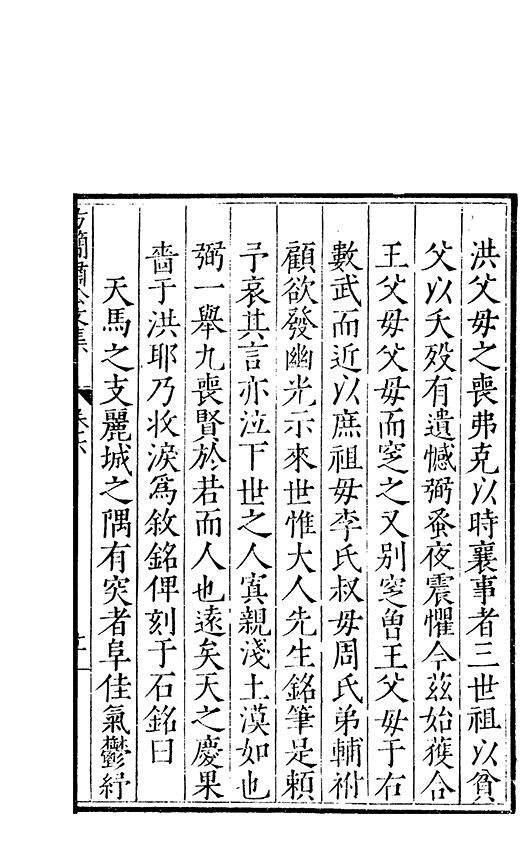 洪父毋之喪弗克以時襄事者三世祖以貧
父以夭歿有遺憾弼蚤夜震懼今茲始獲合
王父毋父毋而窆之又别窆曾王父毋于右
數武而近以庶祖毋李氏叔毋周氏弟輔祔
顧欲發幽光示來世惟大人先生銘筆是頼
予哀其言亦泣下世之人寘親淺土漠如也
弼一舉九喪賢於若而人也遠矣天之慶果
嗇于洪耶乃收淚爲敘銘俾刻于石銘曰
天馬之支麗城之隅有突者阜佳氣鬱紆
方簡肅公文集 卷七